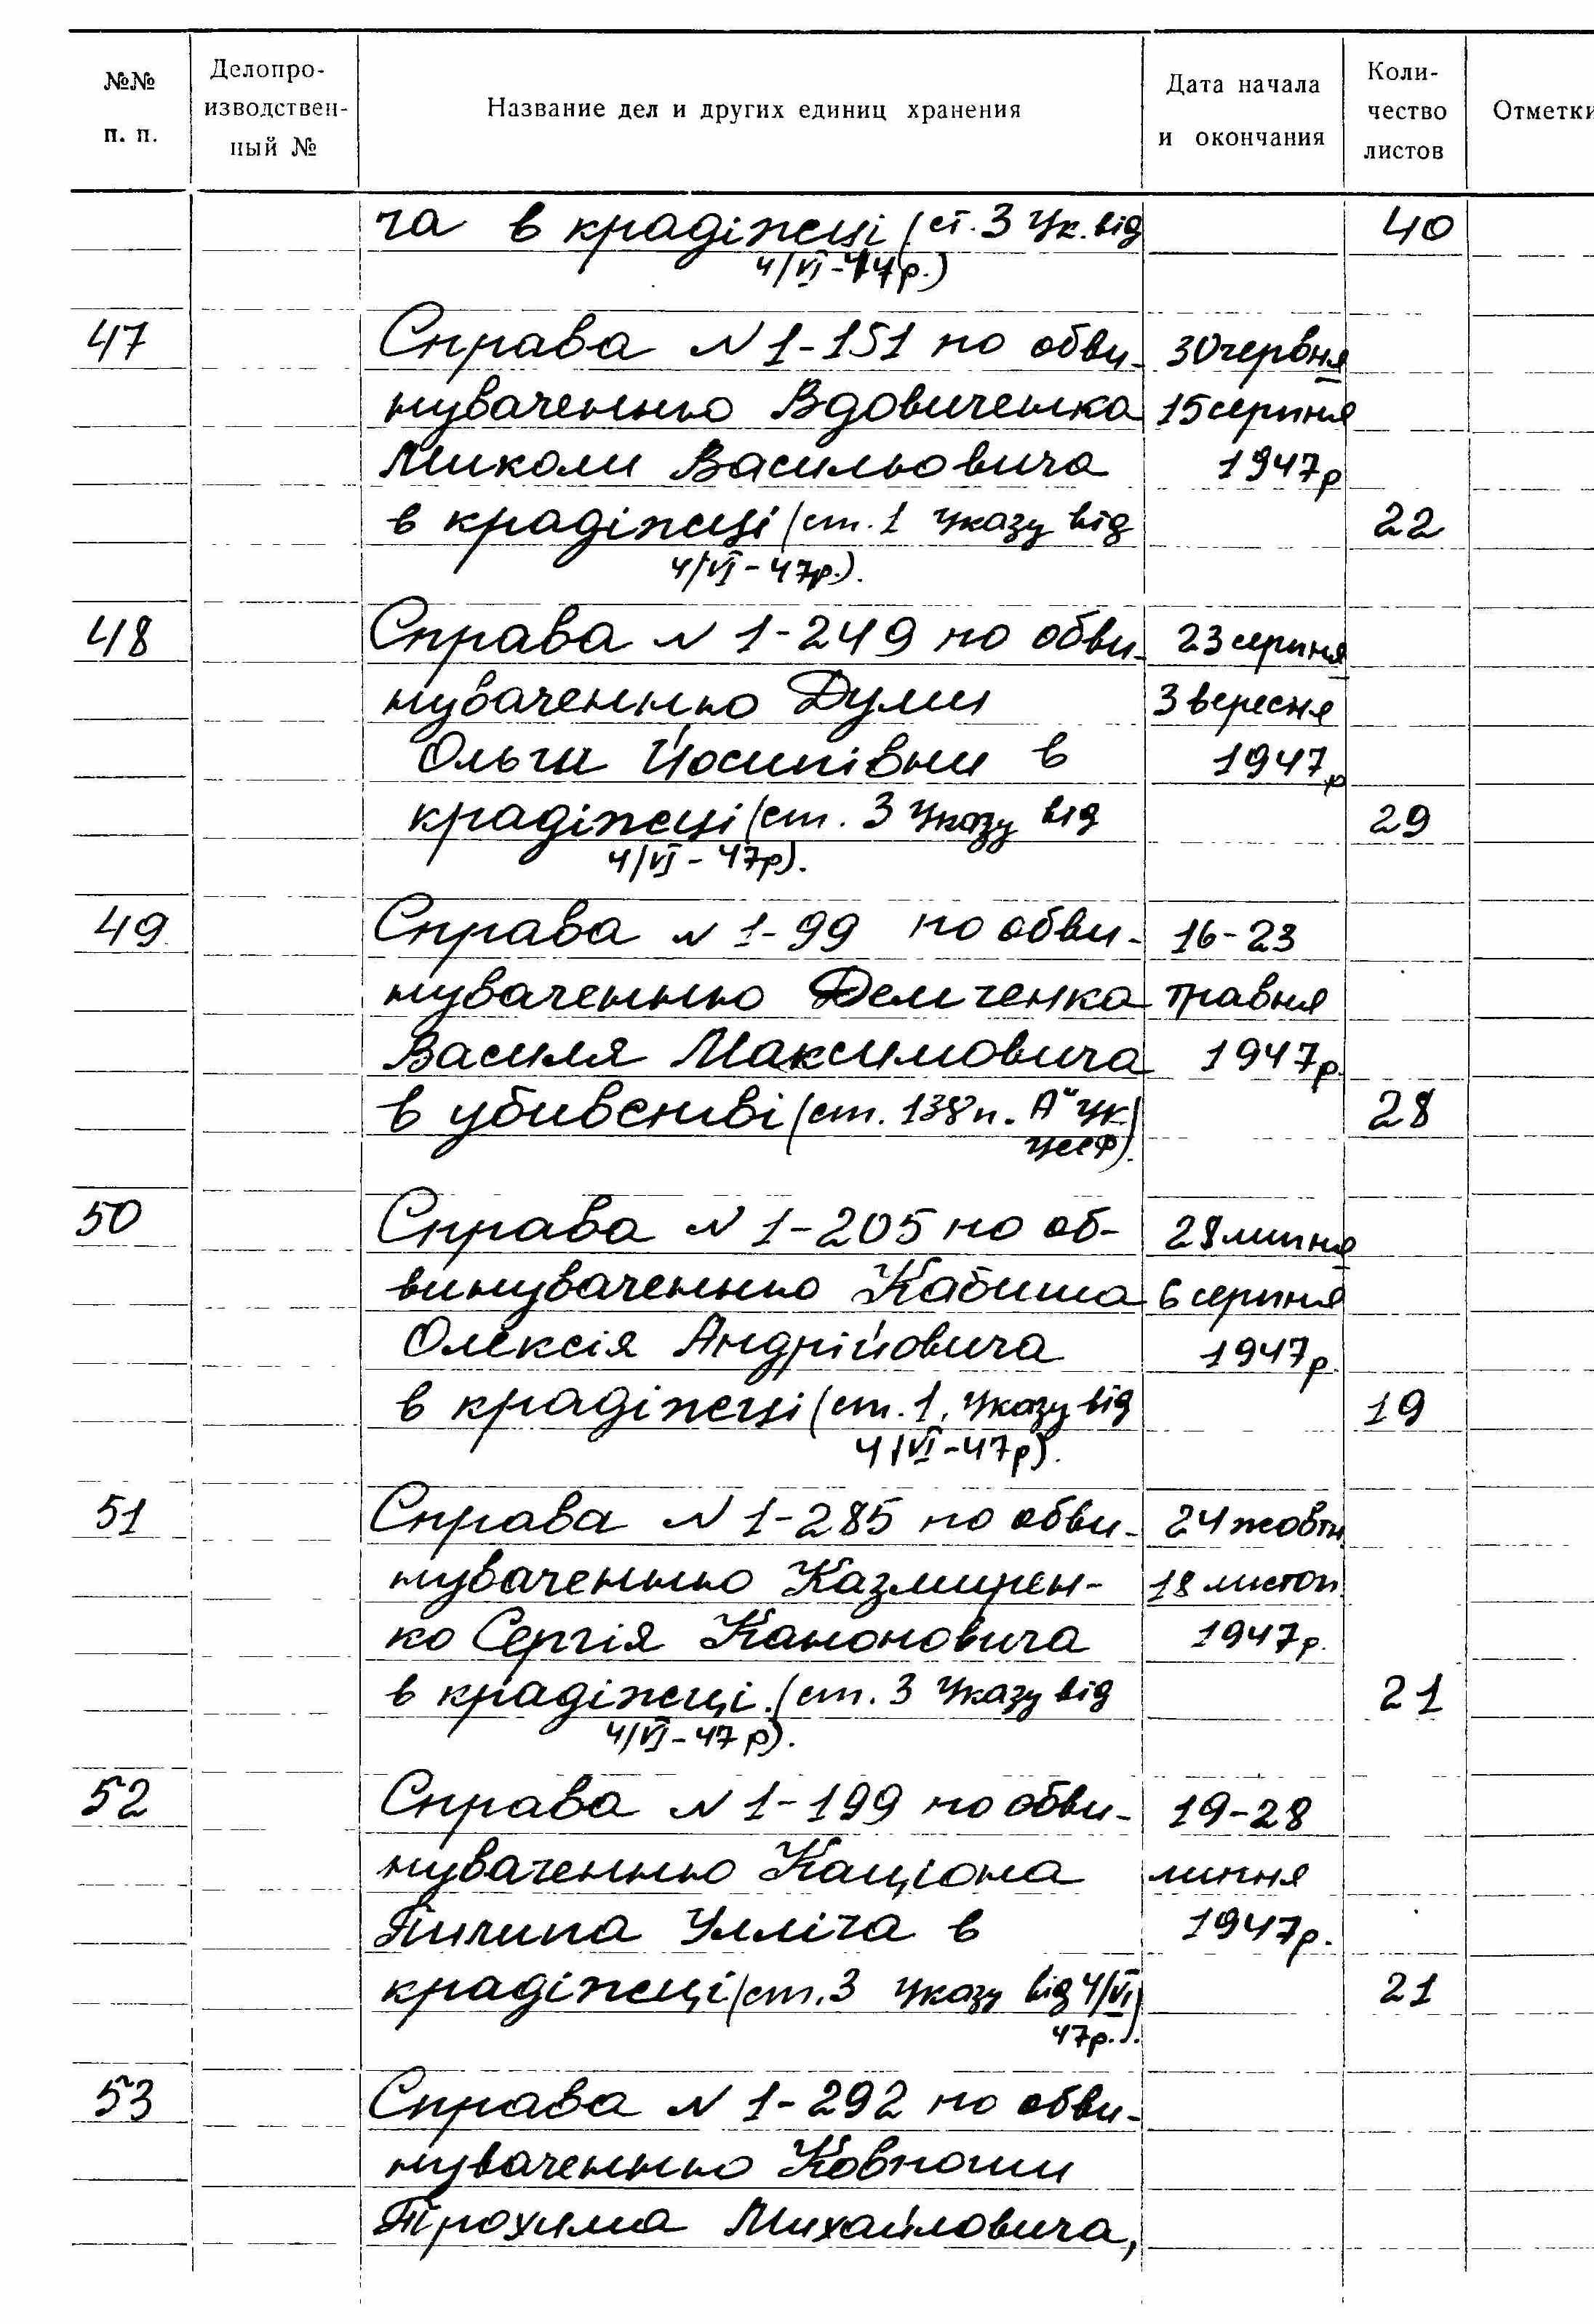 №№ п. п.
Делопро-
изводствен-
ный №
Название дел и других единиц хранения
Дата начала
и окончания
Коли-
чество
листов
Отметки
ча в крадіжці (ст. 3 Ук. від 40
4/VI-47р.)
47 Справа N 1-151 по обви- 30 червня
нуваченню Вдовиченка 15 серпня
Миколи Васильовича 1947р
в крадіжці (ст. 1 Указу від 22
4/VI-47р.).
48 Справа N 1-249 по обви- 23 серпня
нуваченню Думи 3 вересня
Ольги Йосипівни в 1947р
крадіжці (ст. 3 Указу від 29
4/VI-47р).
49 Справа N 1-99 по обви- 16-23
нуваченню Демченка травня
Василя Максимовича 1947р.
в убивстві (ст. 138 п. А" УК 28
УССР).
50 Справа N 1-205 по об- 28 липня
винуваченню Кабиша 6 серпня
Олексія Андрійовича 1947р.
в крадіжці (ст. 1, Указу від 19
4/VI-47р).
51 Справа N 1-285 по обви- 24 жовтн
нуваченню Казмирен- 18 листоп
ко Сергія Кононовича 1947р.
в крадіжці. (ст. 3 Указу від 21
4/VI-47р).
52 Справа N 1-199 по обви- 19-28
нуваченню Каціона липня
Пилипа Ілліча в 1947р.
крадіжці (ст. 3 Указу від 4/VI 21
47р.).
53 Справа N 1-292 по обви-
нуваченню Ковпоши
Трохима Михайловича,